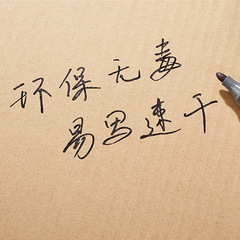 环保无毒
易写速干